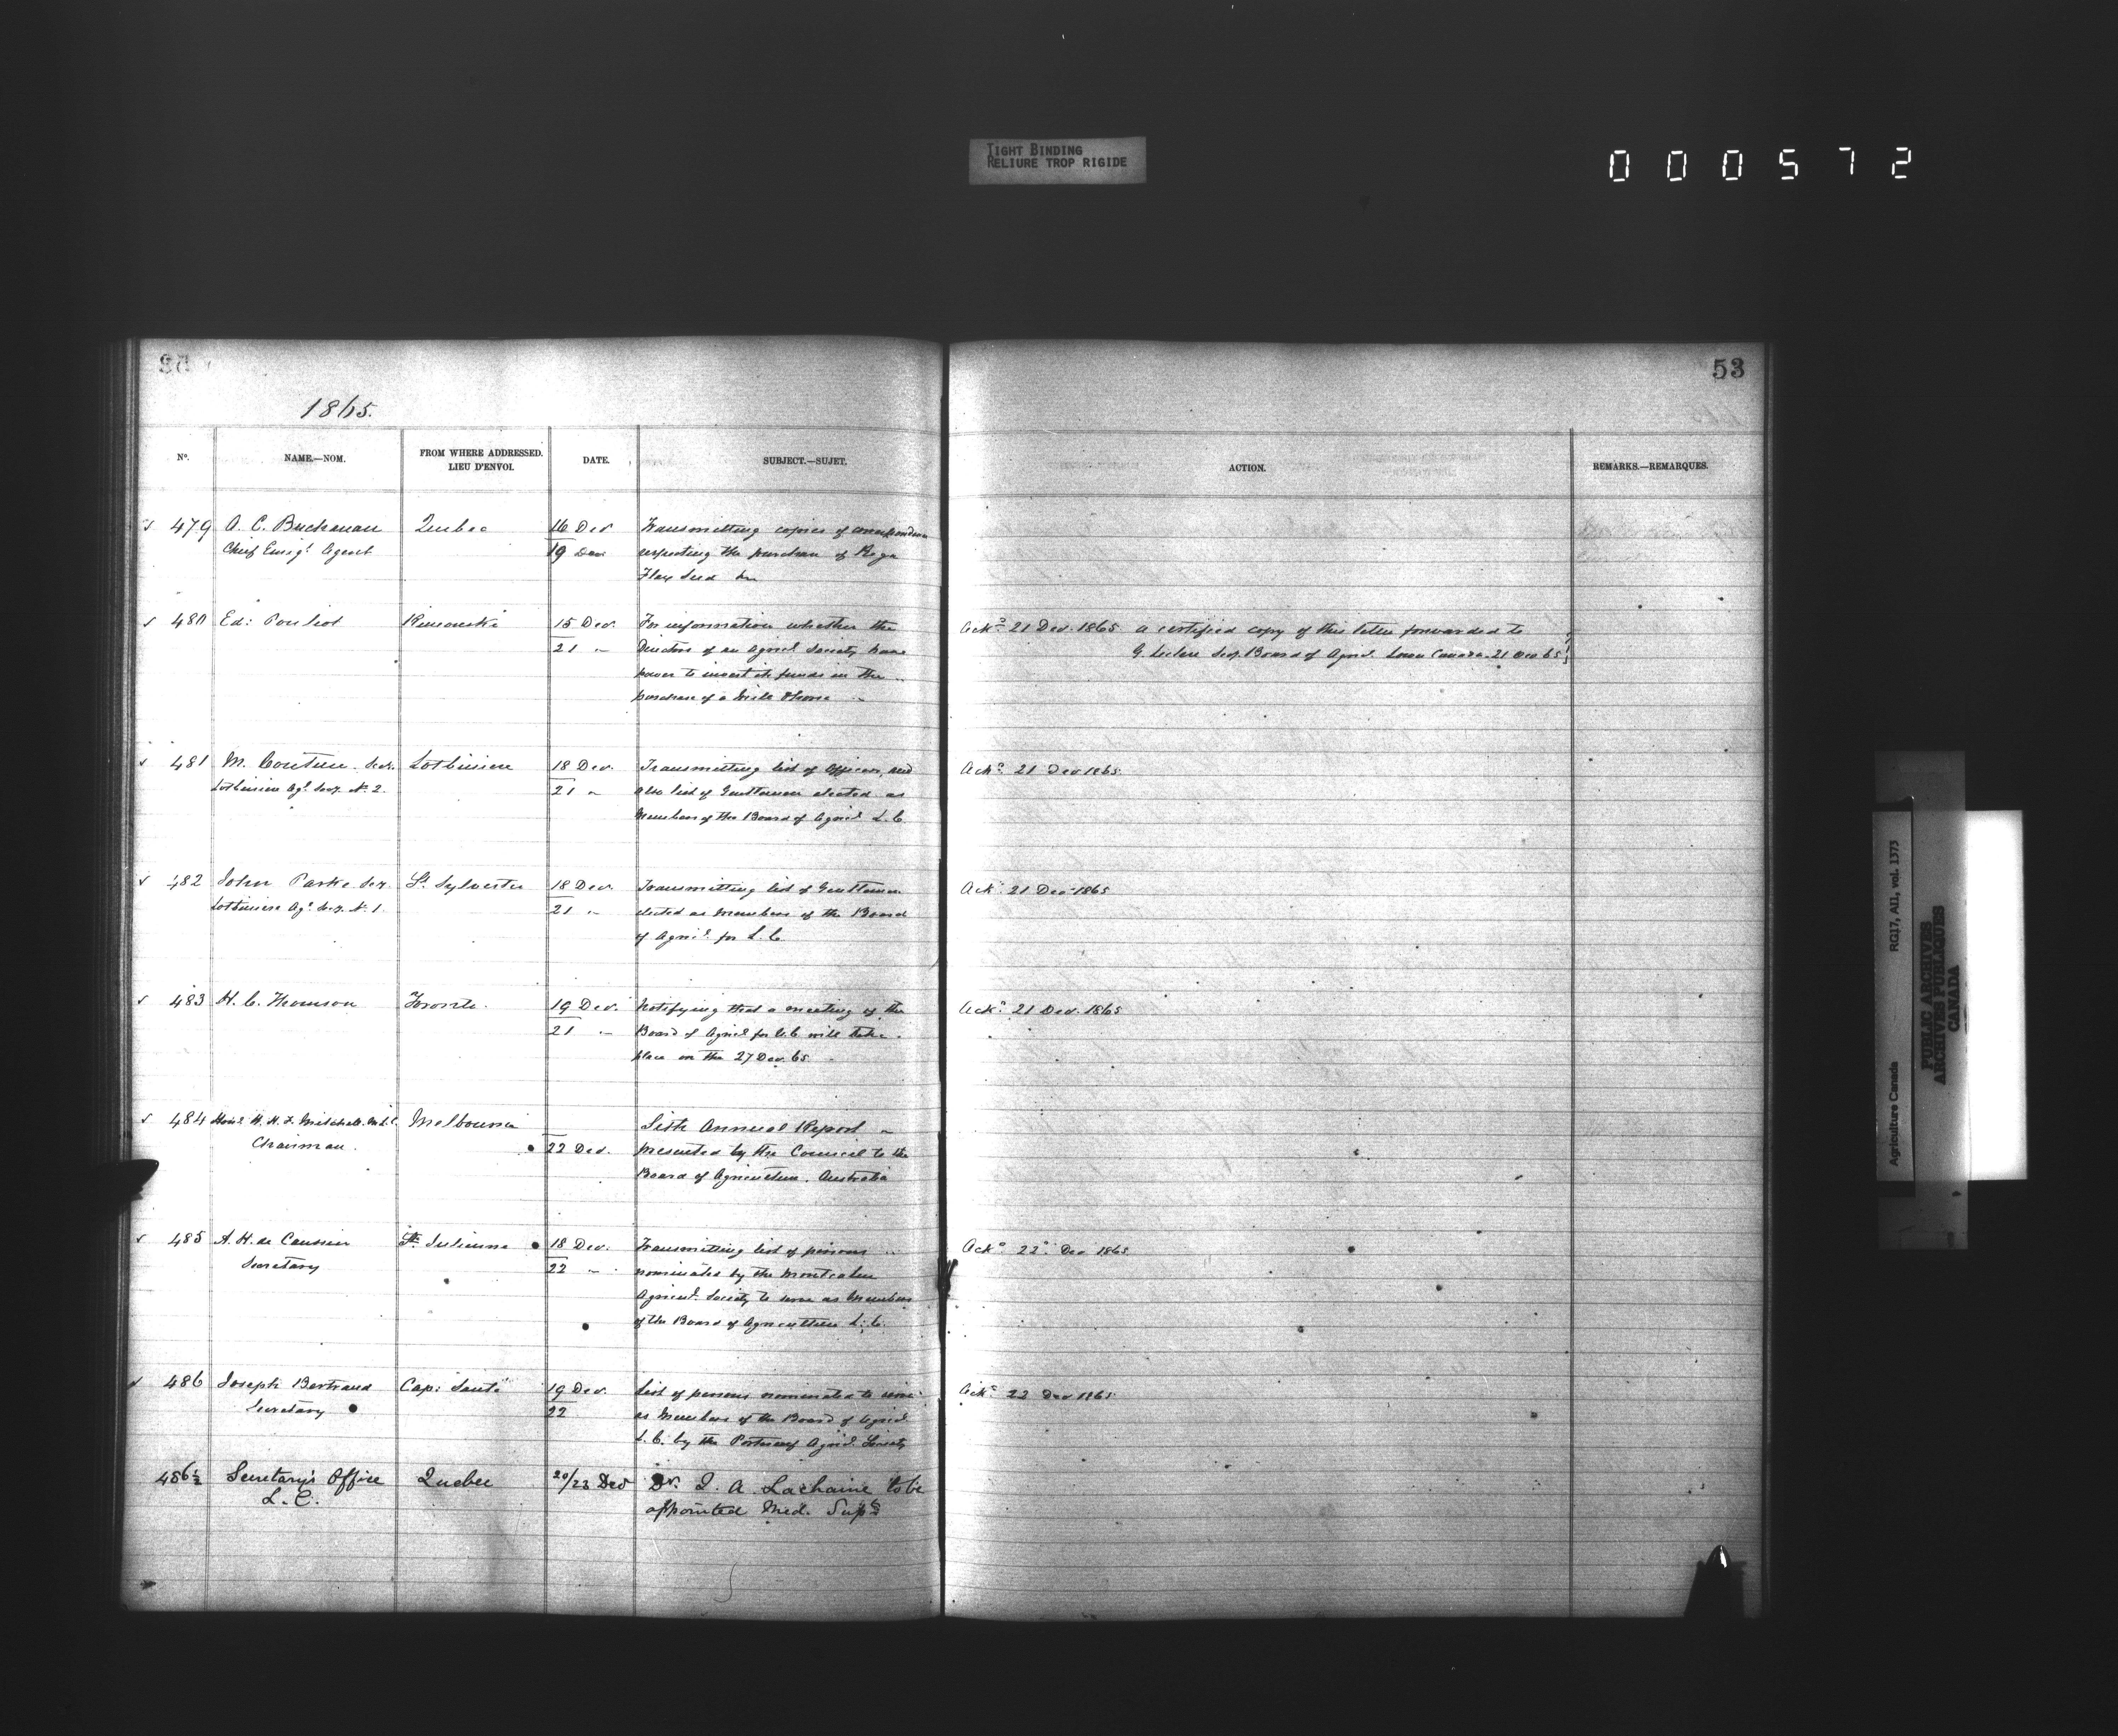 TIGHT BINDING
RELIURE TROP RIGIDE
000572
53
1865.
No. NAME.—NOM. FROM WHERE ADDRESSED. LIEU D'ENVOI. DATE. SUBJECT.—SUJET. ACTION. REMARKS.—REMARQUES.
479 A. C. Buchanan Quebec 16 Dec Transmitting copies of correspondence
Chief Emigt Agent 19 Dec respecting the purchase of Riga
Flax Seed
480 Ed: Pouliot Rimouski 15 Dec. For information whether the Ackd 21 Dec. 1865. a certified copy of this letter forwarded to
21 " Directors of an Agricl Society have G. Leclere Secy. Board of Agricl. Lower Canada. 21 Dec 65
power to invest its funds in the
purchase of a
481 M. Couture Secy. Lotbiniere 18 Dec. Transmitting list of Officers, and Ackd. 21 Dec 1865.
Lotbiniere Agl. Socy. No. 2. 21 " also list of Gentlemen elected as
Members of the Board of Agricl. L. C.
482 John Parke Secy. St. Sylvester 18 Dec. Transmitting list of Gentlemen Ackd. 21 Dec 1865
Lotbiniere Agl. Socy. No. 1. 21 " elected as Members of the Board
of Agricl. for L. C.
483 H. C. Thomson Toronto. 19 Dec. Notifying that a meeting of the Ackd. 21 Dec. 1865
21 " Board of Agricl for U.C will take
place on the 27 Dec. 65
484 Honl. Mitchell M.L.C. Melbourne Sixth Annual Report
Chairman. 22 Dec. presented by the Council to the
Board of Agriculture. Australia
485 A. H. de Caussin Ste. Julienne 18 Dec. Transmitting list of persons Ackd. 22d. Dec 1865.
Secretary 22 " nominated by the Montcalm
Agricul. Society to serve as Members
of the Board of Agriculture L. C.
486 Joseph Bertrand Cap: Santé 19 Dec. List of persons nominated to serve Ackd. 22 Dec 1865.
Secretary 22 as Members of the Board of Agricl
L. C. by the Portneuf Agricl. Society
486½ Secretary's Office Quebec 20/23 Dec Dr. A. Lachaine to be
L. C. appointed Med. Supt
Agriculture Canada RG17, AII, vol. 1373
PUBLIC ARCHIVES
ARCHIVES PUBLIQUES
CANADA